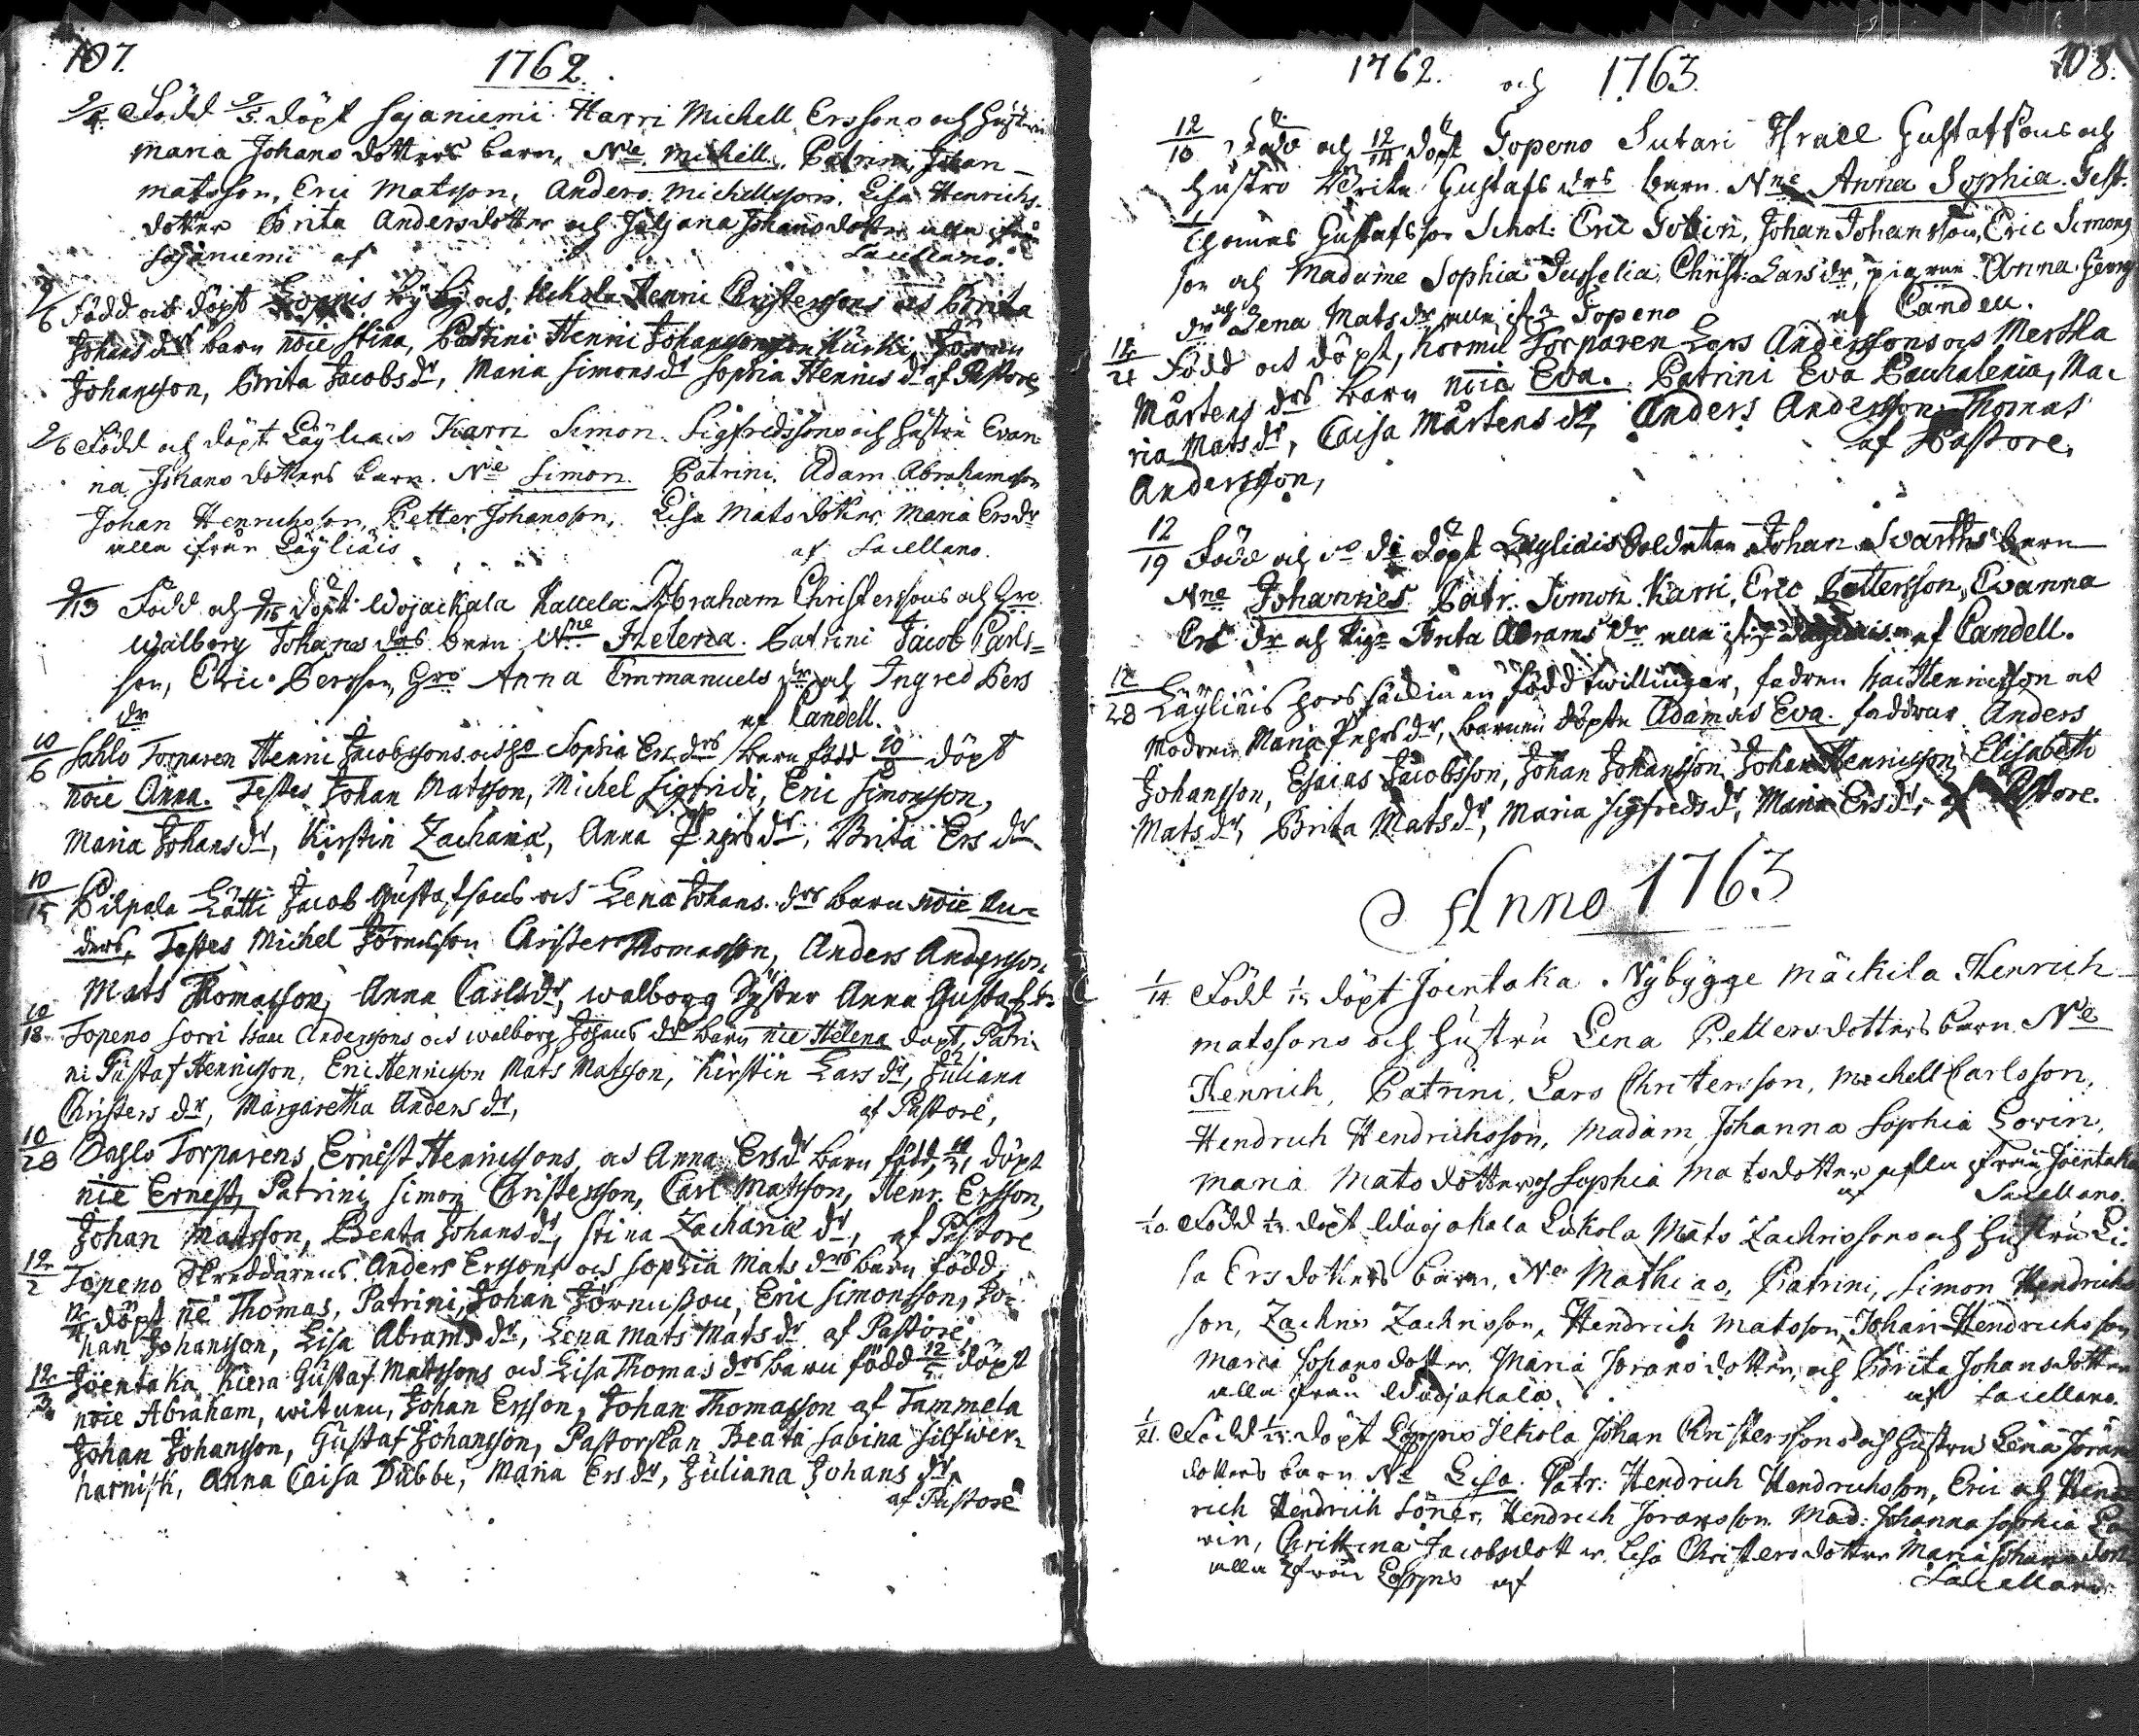 107.
1762.
9/4. Född 9/5 döpt Sajaniemi Harri Michell Erssons och Hustru
Maria Johans dotters barn, Ne Michell. Patrini, Johan
matsson, Eric Matsson, Anders Michellsson, Lisa Henrichs
dotter Brita Andersdotter och Juljana Johans dotter alla ifrån
Sajaniemi af Sacellano.
9/6 Född och döpt Loppis Ukkola Henric Christerssons och Brita
Johans dr barn noie Stina, Patrini Henric Johansson Kurki, Jören
Johansson, Brita Jacobs dr, Maria Simons dr Sophia Henrics dr af Pastore
9/6 Född och döpt Läyliäis Karri Simon Sigfredssons och hustru Evan
na Johans dotters barn. Ne Simon. Patrini, Adam Abrahamsson
Johan Henrichsson, Petter Johansson, Lisa Mats dotter Maria Ers dr
alla ifrån Läyliäis af Sacellano.
9/13 Född och 9/15 döpt Wojackala Kallela Abraham Christerssons och Hro
Walborg Johans drs barn Nne Helena. Patrini Jacob Carls=
son, Eric Persson, Hro Anna Emmanuels dr och Ingred Pers
dr af Candell.
10/6 Sahlo Torparen Henric Jacobssons och Ho Sophia Ers drs barn född 10/8 döpt
noie Anna. Testes Johan Matsson, Michel Sigfridi, Eric Simonsson,
Maria Johans dr, Kirstin Zachariæ, Anna Pehrs dr, Brita Ers dr
10/15 Pilpala Lätti Jacob Gustafsons och Lena Johans drs barn noie An=
ders, Testes Michel Jörensson Christer Thomasson, Anders Andersson
Mats Thomasson, Anna Carls dr, Walborg Syster Anna Gustafs dr
10/18 Topeno Sorri Anderssons och Walborg Johans dr barn nie Helena döpt, Patri=
ni Gustaf Henricsson, Eric Henricsson Mats Matsson, Kirstin Lars dr, Juliana
Christers dr, Margaretha Anders dr, af Pastore,
10/28 Sahlo Torparens, Ernest Henricssons, och Anna Ers dr barn född, 10/31 döpt
nie Ernest, Patrini Simon Christersson, Carl Matsson, Henr. Ersson,
Johan Matsson, Beata Johans dr, Stina Zachariæ dr, af Pastore
12/2 Topeno Skreddarens Anders Erssons och Sophia Mats drs barn född,
döpt ne Thomas, Patrini, Johan Jörensson, Eric Simonsson, Jo=
han Johansson, Lisa Abrams dr, Lena Mats Mats dr af Pastore,
12/3 Joentaka Kiera Gustaf Matssons och Lisa Thomas drs barn född 12/5 döpt
noie Abraham, witnen, Johan Ersson, Johan Thomasson af Tammela
Johan Johansson, Gustaf Johansson, Pastorskan Beata Sabina Silfwer=
harnisk, Anna Caisa Dubbe, Maria Ers dr, Juliana Johans dr,
af Pastore
1762. och 1763.
108.
12/10 Född och 12/14 döpt Topeno Sutari Israel Gustafsons och
hustro Brita Gustafs drs barn Nne Anna Sophia. Test.
Thomas Gustafsson Schol: Eric Tolin, Johan Johansson, Eric Simons
son och Madame Sophia Christ: Lars dr, pigan Anna Georg
dr och Lena Mats dr alla ifr. Topeno af Candell.
12/21 Född och döpt, Kormu Torparen Lars Anderssons och Mertha
Mårtens drs barn noie Eva. Patrini Eva Pachalenia, Ma=
ria Mats dr, Caisa Mårtens dr, Anders Andersson Thomas
Andersson, af Pastore,
12/19 Född och döpt Läyliäis Soldaten Johan Svarths barn
Nne Johannes. Patr. Simon Karri, Eric Pettersson, Evanna
Ers dr och Pig. Brita Abrams dr alla ifr. Läyliäis af Candell.
12/28 Läyliäis född twillingar, fadren Henricsson och
Modren Maria Pehrs dr, barnen döpte Adam och Eva. faddrar Anders
Johansson, Esaias Jacobsson, Johan Johansson Johan Henricsson Elisabeth
Mats dr, Brita Mats dr, Maria Sigfreds dr, Maria Ers dr, af Pastore.
Anno 1763
1/14 Född döpt Joentaka Nybygge Mäckila Henrich
matssons och hustru Lena Petters dotters barn Ne
Henrich, Patrini, Lars Christersson, Mechell Carlsson,
Hendrich Hendrichsson, Madam Johanna Sophia Lovin,
Maria Mats dotter och Sophia Mats dotter alla ifrån Joentaka
af Sacellano.
1/20. Född döpt Wojakala Lukola Mats Zachrissons och hustru Li=
sa Ers dotters barn, Ne Mathias, Patrini, Simon Hendrichs
son, Zachris Zachrisson, Hendrich Matsson, Johan Hendrichsson
Maria Johans dotter, Maria Jorans dotter, och Brita Johans dotter
alla ifrån Wojakala. af Sacellano.
1/21. Född döpt Loppis Ilkola Johan Christerssons och hustru Lena Joran
dotters barn Ne Lisa. Patr: Hendrich Hendrichsson, Eric och Hend
rich Hendrich Söner, Hendrich Joransson Mad: Johanna Sophia Lo
vin, Christina Jacobsdotter Lisa Christersdotter Maria Johans dott
alla ifrån Loppis af Sacellano